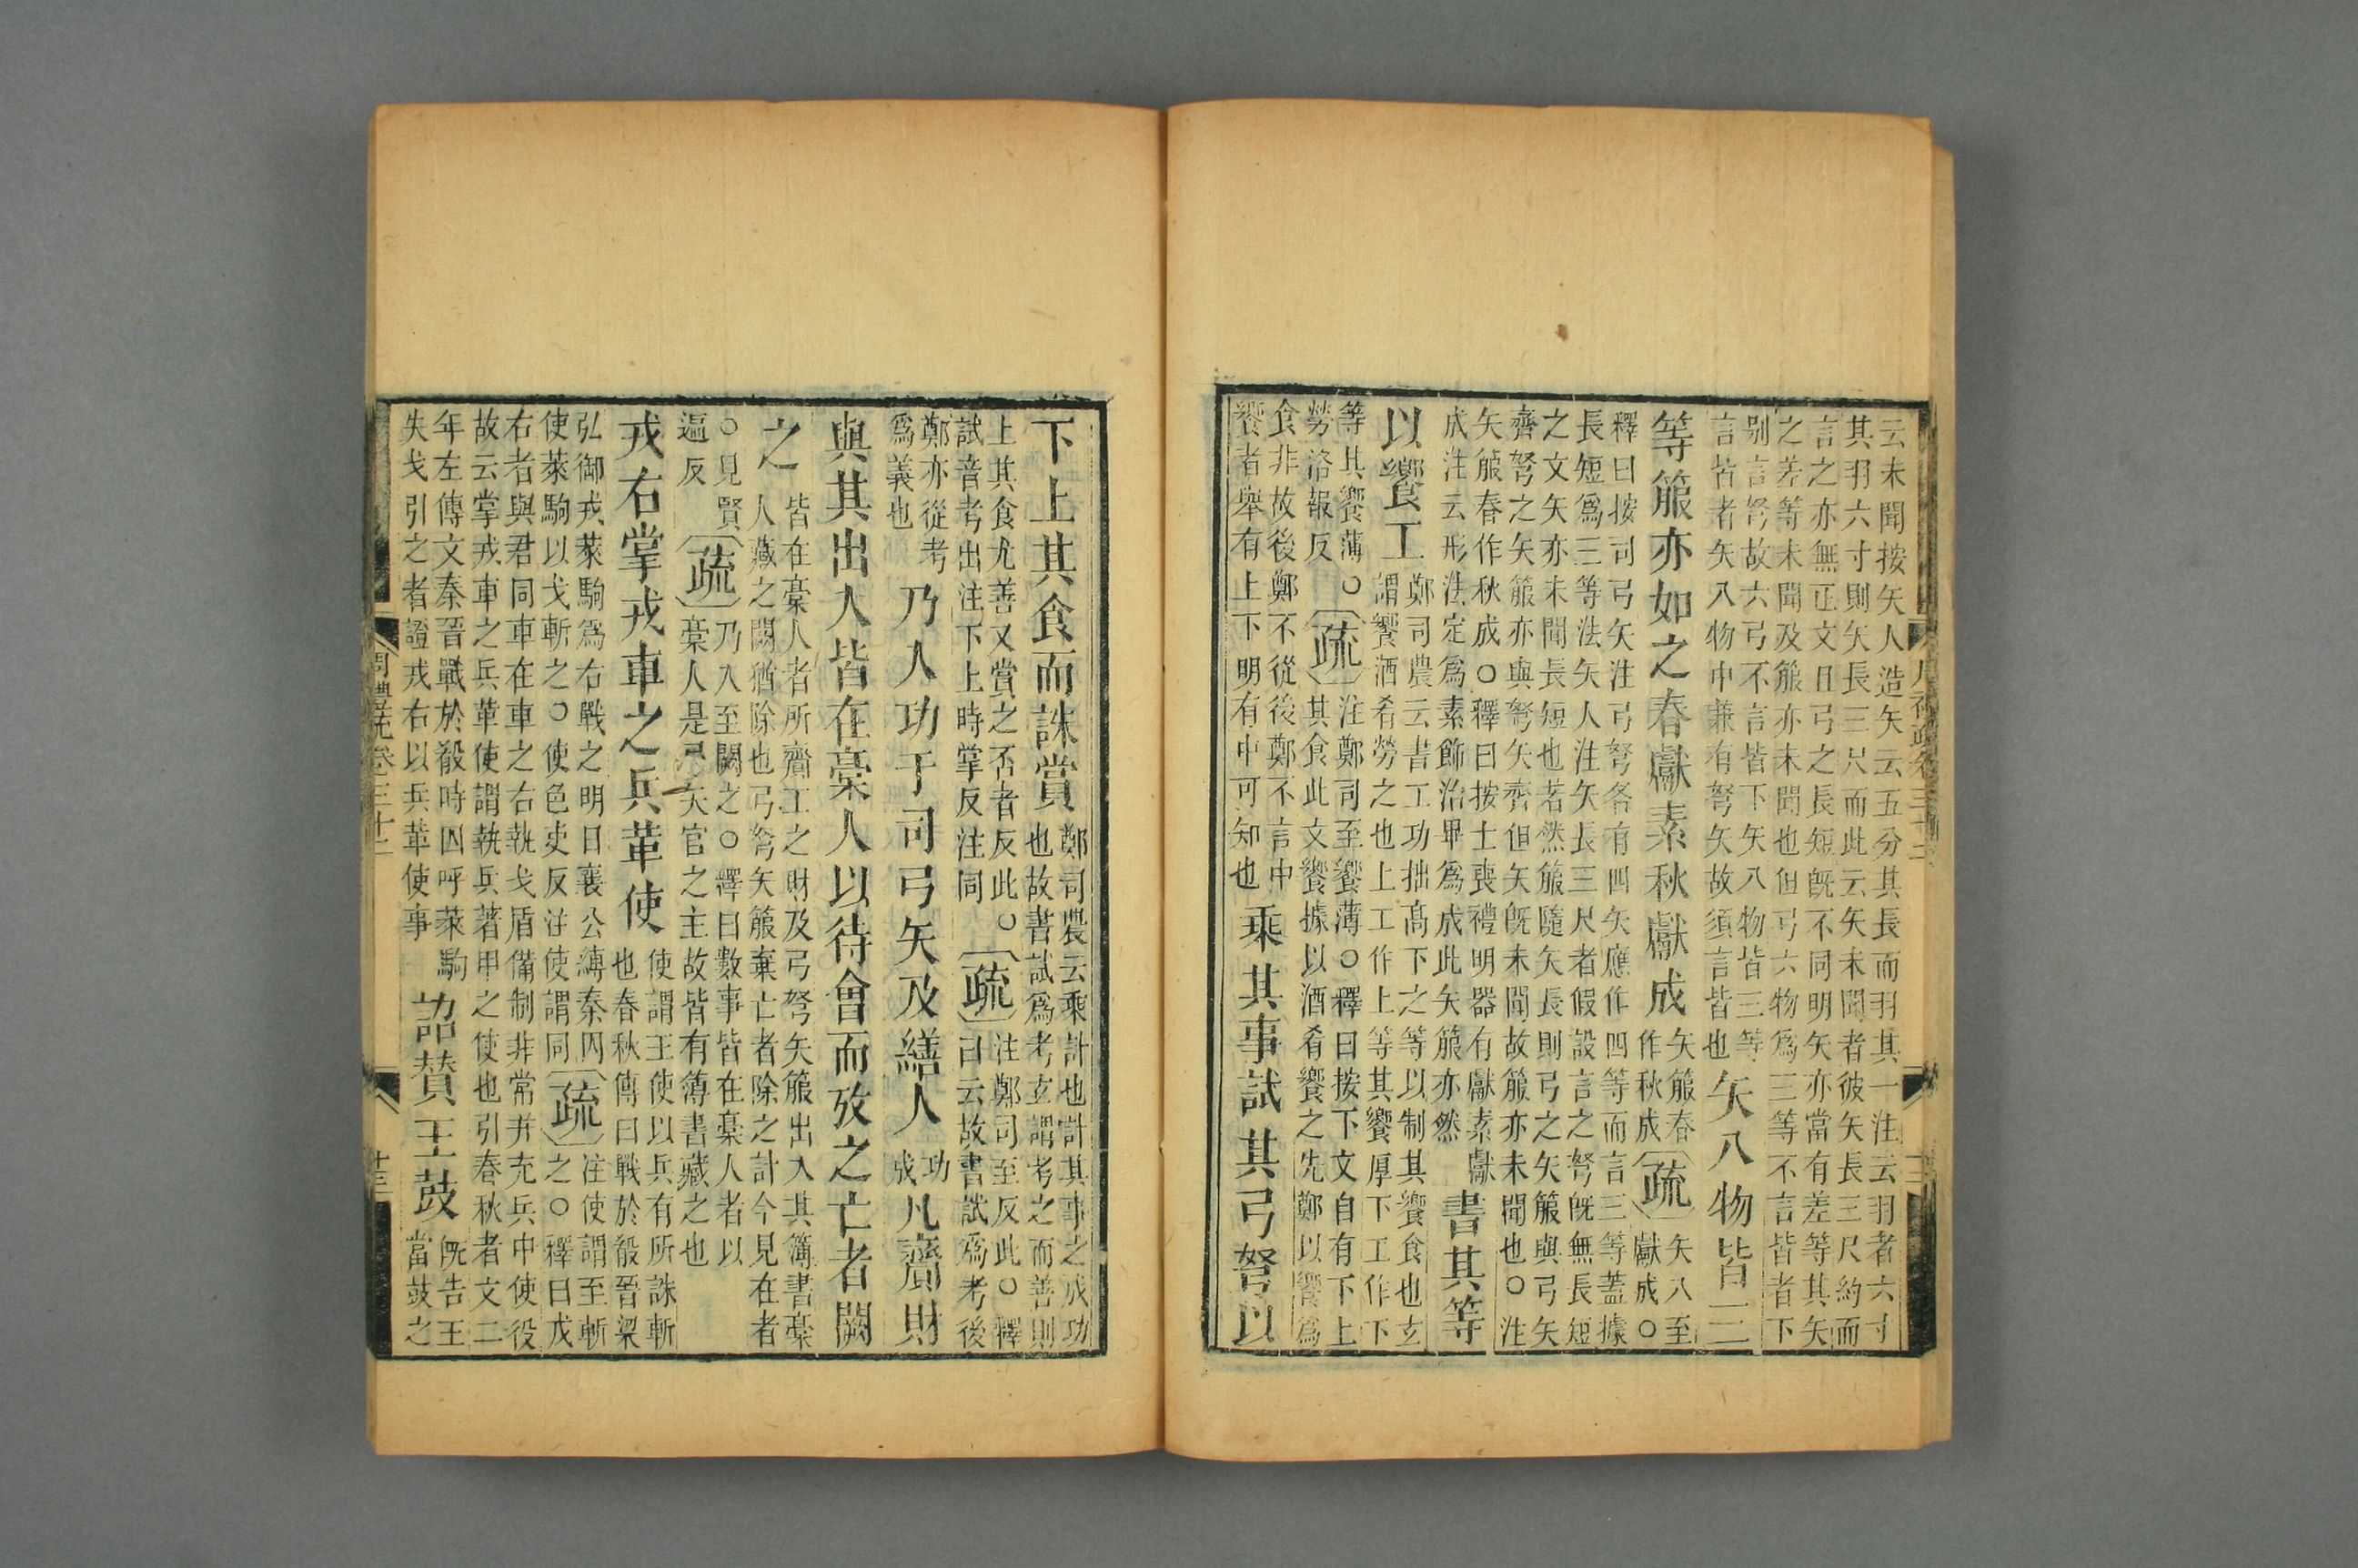 云未聞按矢人造矢云五分其長而羽其一注云羽者六寸
其羽六寸則矢長三尺而此云矢未聞者彼矢長三尺約而
言之亦無正文且弓之長短旣不同明矢亦當有差等其矢
之差等未聞及箙亦未聞也但弓六物爲三等不言皆者下
别言弩故六弓不言皆下矢八物皆三等
言皆者矢八物中兼有弩矢故須言皆也
矢八物皆三
等箙亦如之春獻素秋獻成
矢箙春
作秋成
疏
矢八至
獻成○
釋曰按司弓矢注弓弩各有四矢應作四等而言三等蓋據
長短爲三等法矢人注矢長三尺者假設言之弩旣無長短
之文矢亦未聞長短也若然箙隨矢長則弓之矢箙與弓矢
齊弩之矢箙亦與弩矢齊但矢旣未聞故箙亦未聞也○注
矢箙春作秋成○釋曰按士喪禮明器有獻素獻
成注云形法定爲素飾治畢爲成此矢箙亦然
書其等
以饗工
鄭司農云書工功拙高下之等以制其饗食也玄
謂饗酒肴勞之也上工作上等其饗厚下工作下
等其饗薄○
勞洛報反
疏
注鄭司至饗薄○釋曰按下文自有下上
其食此文饗據以酒肴饗之先鄭以饗爲
食非故後鄭不從後鄭不言中
饗者舉有上下明有中可知也
乘其事試其弓弩以
下上其食而誅賞
鄭司農云乘計也計其事之成功
也故書試爲考玄謂考之而善則
上其食尤善又賞之否者反此○
試音考出注下上時掌反注同
疏
注鄭司至反此○釋
曰云故書試爲考後
鄭亦從考
爲義也
乃入功于司弓矢及繕人
功
成
凡齎財
與其出入皆在槀人以待會而攷之亡者闕
之
皆在槀人者所齎工之財及弓弩矢箙出入其簿書槀
人藏之闕猶除也弓弩矢箙棄亡者除之計今見在者
○見賢
遍反
疏
乃入至闕之○釋曰數事皆在槀人者以
槀人是弓矢官之主故皆有簿書藏之也
戎右掌戎車之兵革使
使謂王使以兵有所誅斬
也春秋傳曰戰於殽晉梁
弘御戎萊駒爲右戰之明日襄公縛秦囚
使萊駒以戈斬之○使色吏反注使謂同
疏
注使謂至斬
之○釋曰戎
右者與君同車在車之右執戈盾備制非常并充兵中使役
故云掌戎車之兵革使謂執兵著甲之使也引春秋者文二
年左傳文秦晉戰於殽時囚呼萊駒
失戈引之者證戎右以兵革使事
詔贊王鼓
旣告王
當鼓之
周禮疏卷三十二
十三